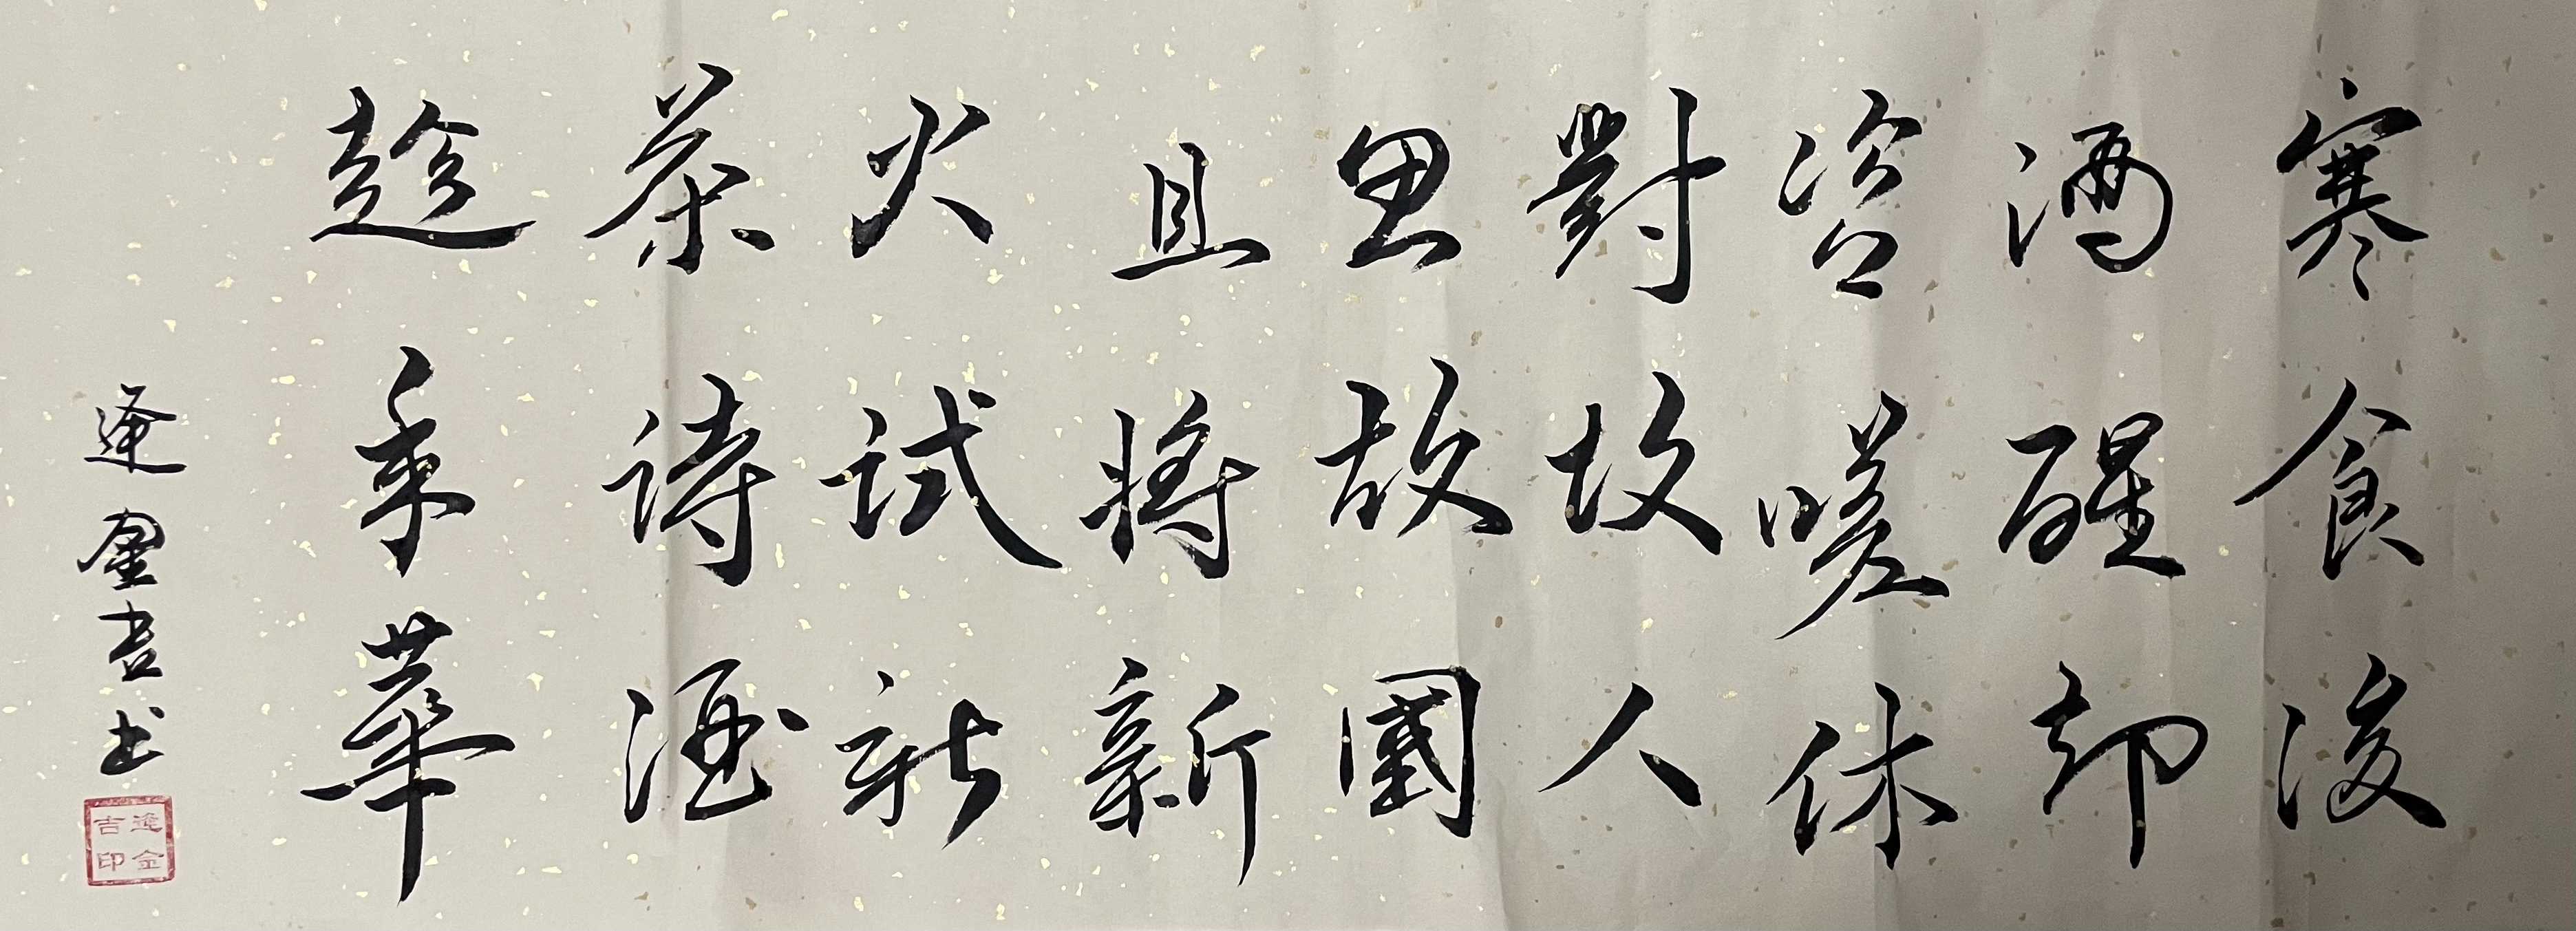 寒食後
酒醒却
咨嗟休
對故人
思故國
且將新
火試新
茶詩酒
趁年華
逄金吉书
逄金
吉印